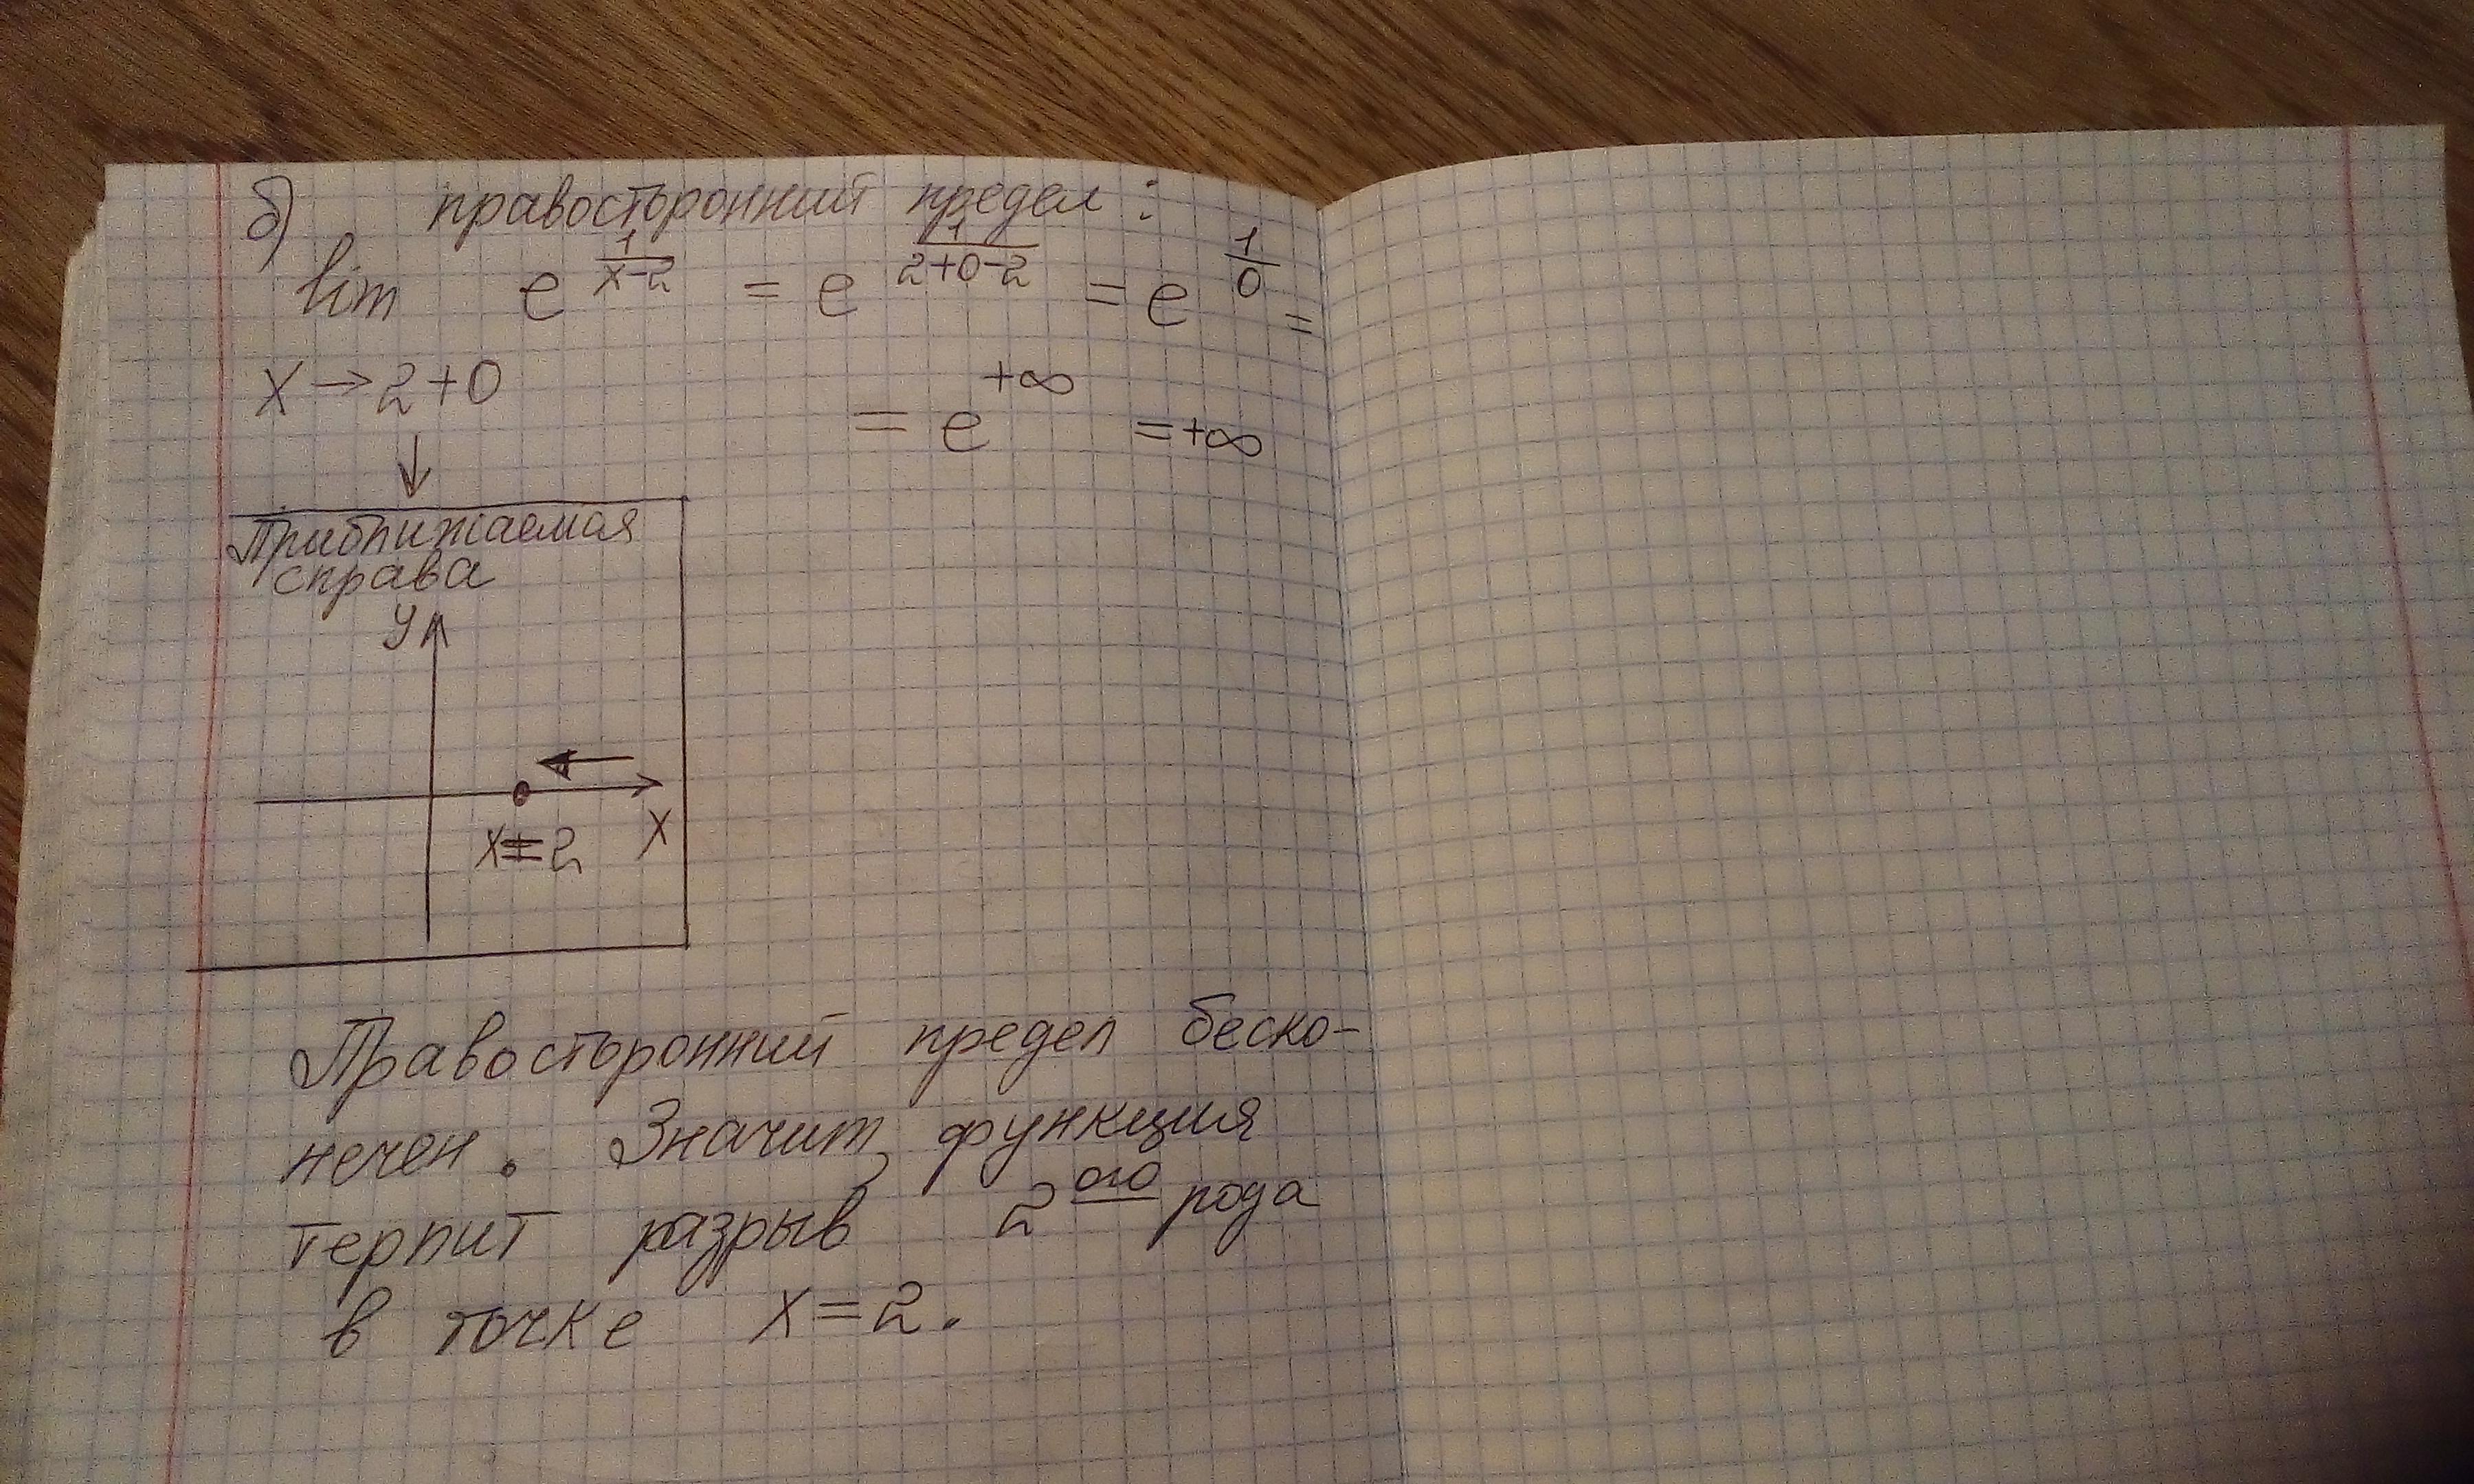 б) правосторонний предел:
lim e^{1/(x-2)} = e^{1/(2+0-2)} = e^{1/0} =
x → 2+0
= e^{+∞} = +∞
Приближаемая
справа
y
x=2 x
Правосторонний предел беско-
нечен. Значит, функция
терпит разрыв 2^{ого} рода
в точке x=2.